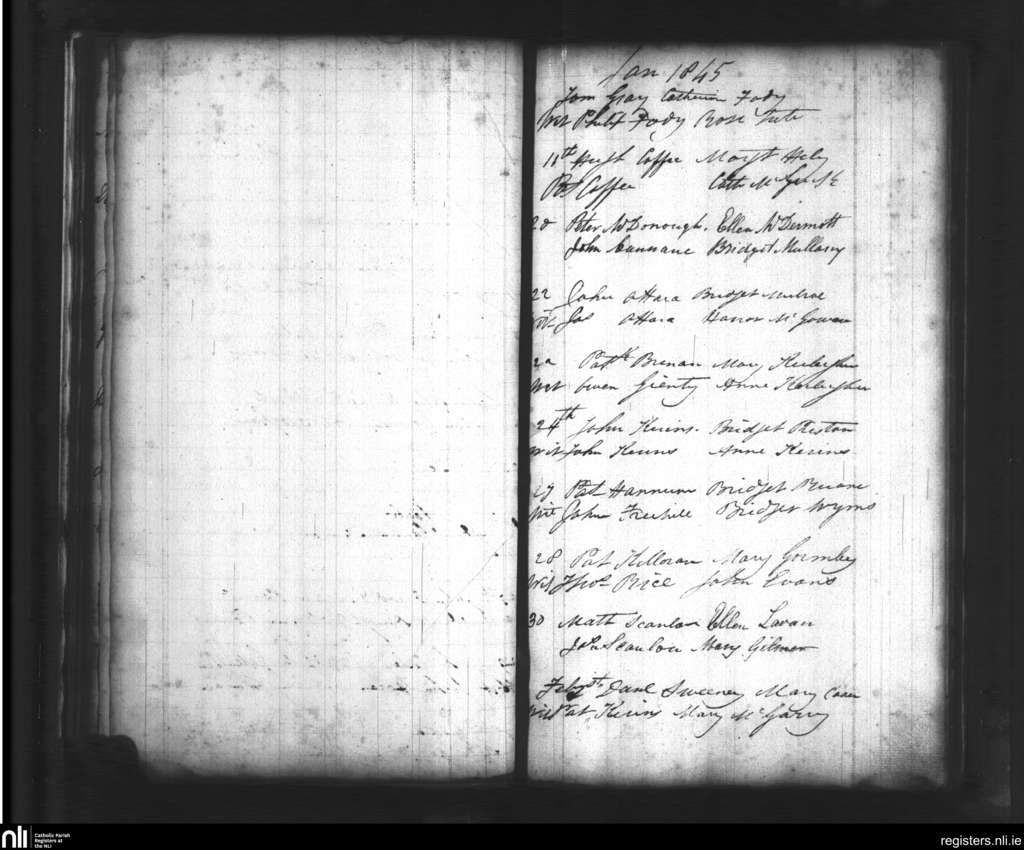 Jan 1845
Tom Gray Catherin Fody
Wit Philip Fody Rose Tute
11th Hugh Coffee Margt Hely
Pat Coffee Cath
20 Peter McDonough. Ellen McDermott
John Cunnane Bridget Mullany
22 John OHara Bridget Mulroe
Wit Jas OHara Honor McGowan
Patk Brenan Mary Keregher
Wit Owen Gienty Anne
24th John Kerins. Bridget Preston
Wit John Kerins Anne Kerins
Pat Hannum Bridget Ruane
Wit John Freehele Bridget Wyms
28 Pat Killoran Mary Gormley
Wit Thos Price John Evans
30 Math Scanlon Ellen Lavan
John Scanlon Mary Gilmer
Danl Sweeney Mary
Wit Pat Kerins Mary McGarry
nli
Catholic Parish
Registers at
the NLI
registers.nli.ie